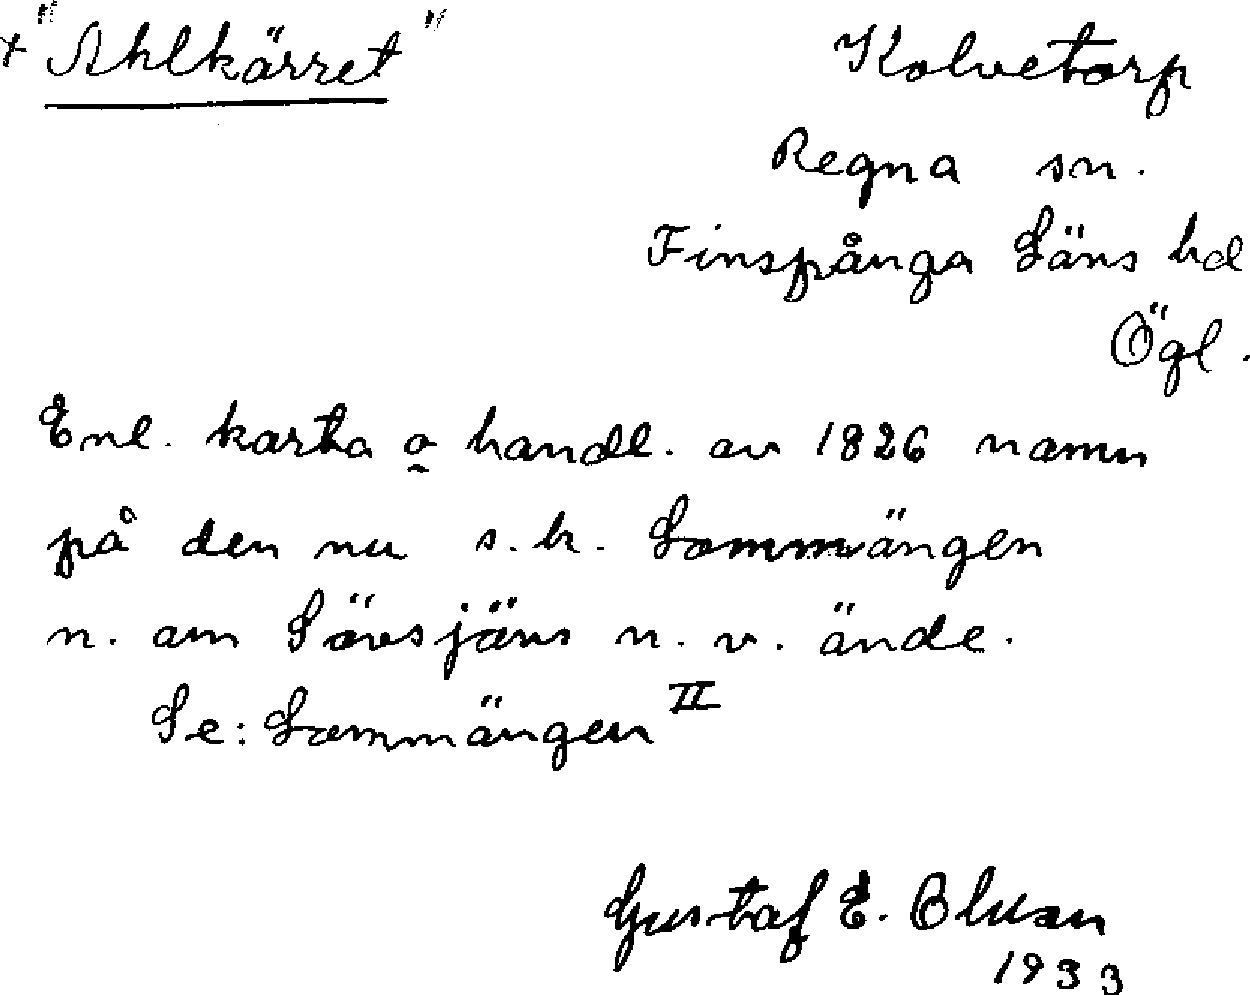 + "Ahlkärret" Kolvetorp
Regna sn.
Finspånga Läns hd
Ögl.
Enl. karta o handl. av 1826 namn
på den nu s.k. Lommängen
n. om Sävsjöns n.v. ände.
Se: Lommängen II
Gustaf E.
1933